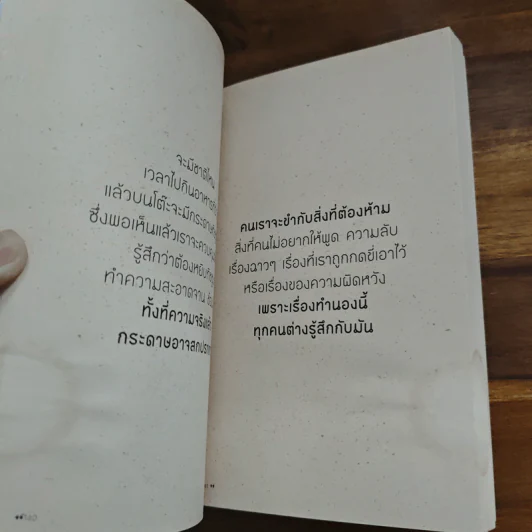 จะมีชาติไหน
เวลาไปกินอาหาร
แล้วบนโต๊ะจะมีกระดาษ
ซึ่งพอเห็นแล้วเราจะ
รู้สึกว่าต้องหยิบ
ทำความสะอาดจาน
ทั้งที่ความจริงแล้ว
กระดาษอาจสกปรก
คนเราจะขำกับสิ่งที่ต้องห้าม
สิ่งที่คนไม่อยากให้พูด ความลับ
เรื่องฉาวๆ เรื่องที่เราถูกกดขี่เอาไว้
หรือเรื่องของความผิดหวัง
เพราะเรื่องทำนองนี้
ทุกคนต่างรู้สึกกับมัน